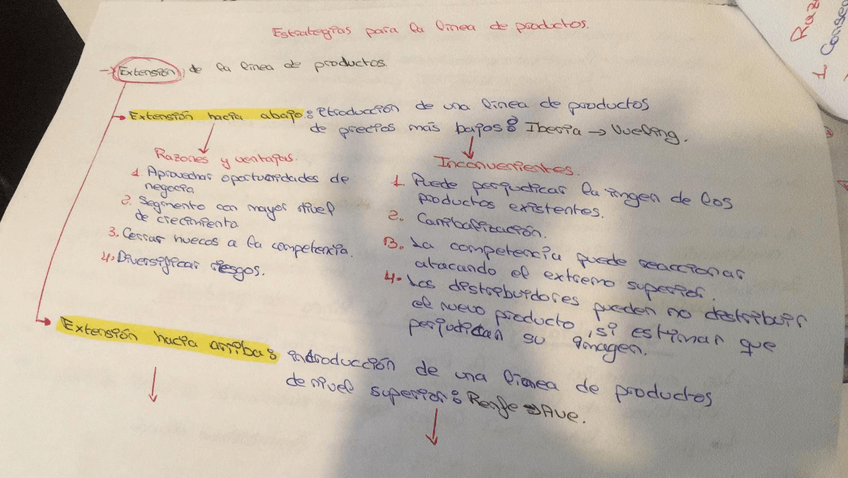 Estrategias para la linea de productos.
→ Extensión de la linea de productos
Extensión hacia abajo: itroducción de una linea de productos
de precios más bajos: Iberia → Vueling.
Razones y ventajas.
1. Aprovechar oportunidades de
negocia
2. Segmento con mayor nivel
de crecimiento
3. Cerrar huecos a la competencia.
4. Diversificar riesgos.
Inconvenientes.
1. Puede perjudicar la imgen de los
productos existentes.
2. Canibalización.
3. La competencia puede reaccionar
atacando el extremo superior.
4. Los distribuidores pueden no distribuir
el nuevo producto, si estiman que
perjudican su imagen.
Extensión hacia arriba: introducción de una linea de productos
de nivel superior: Renfe → Ave.
Razo
1 Conse